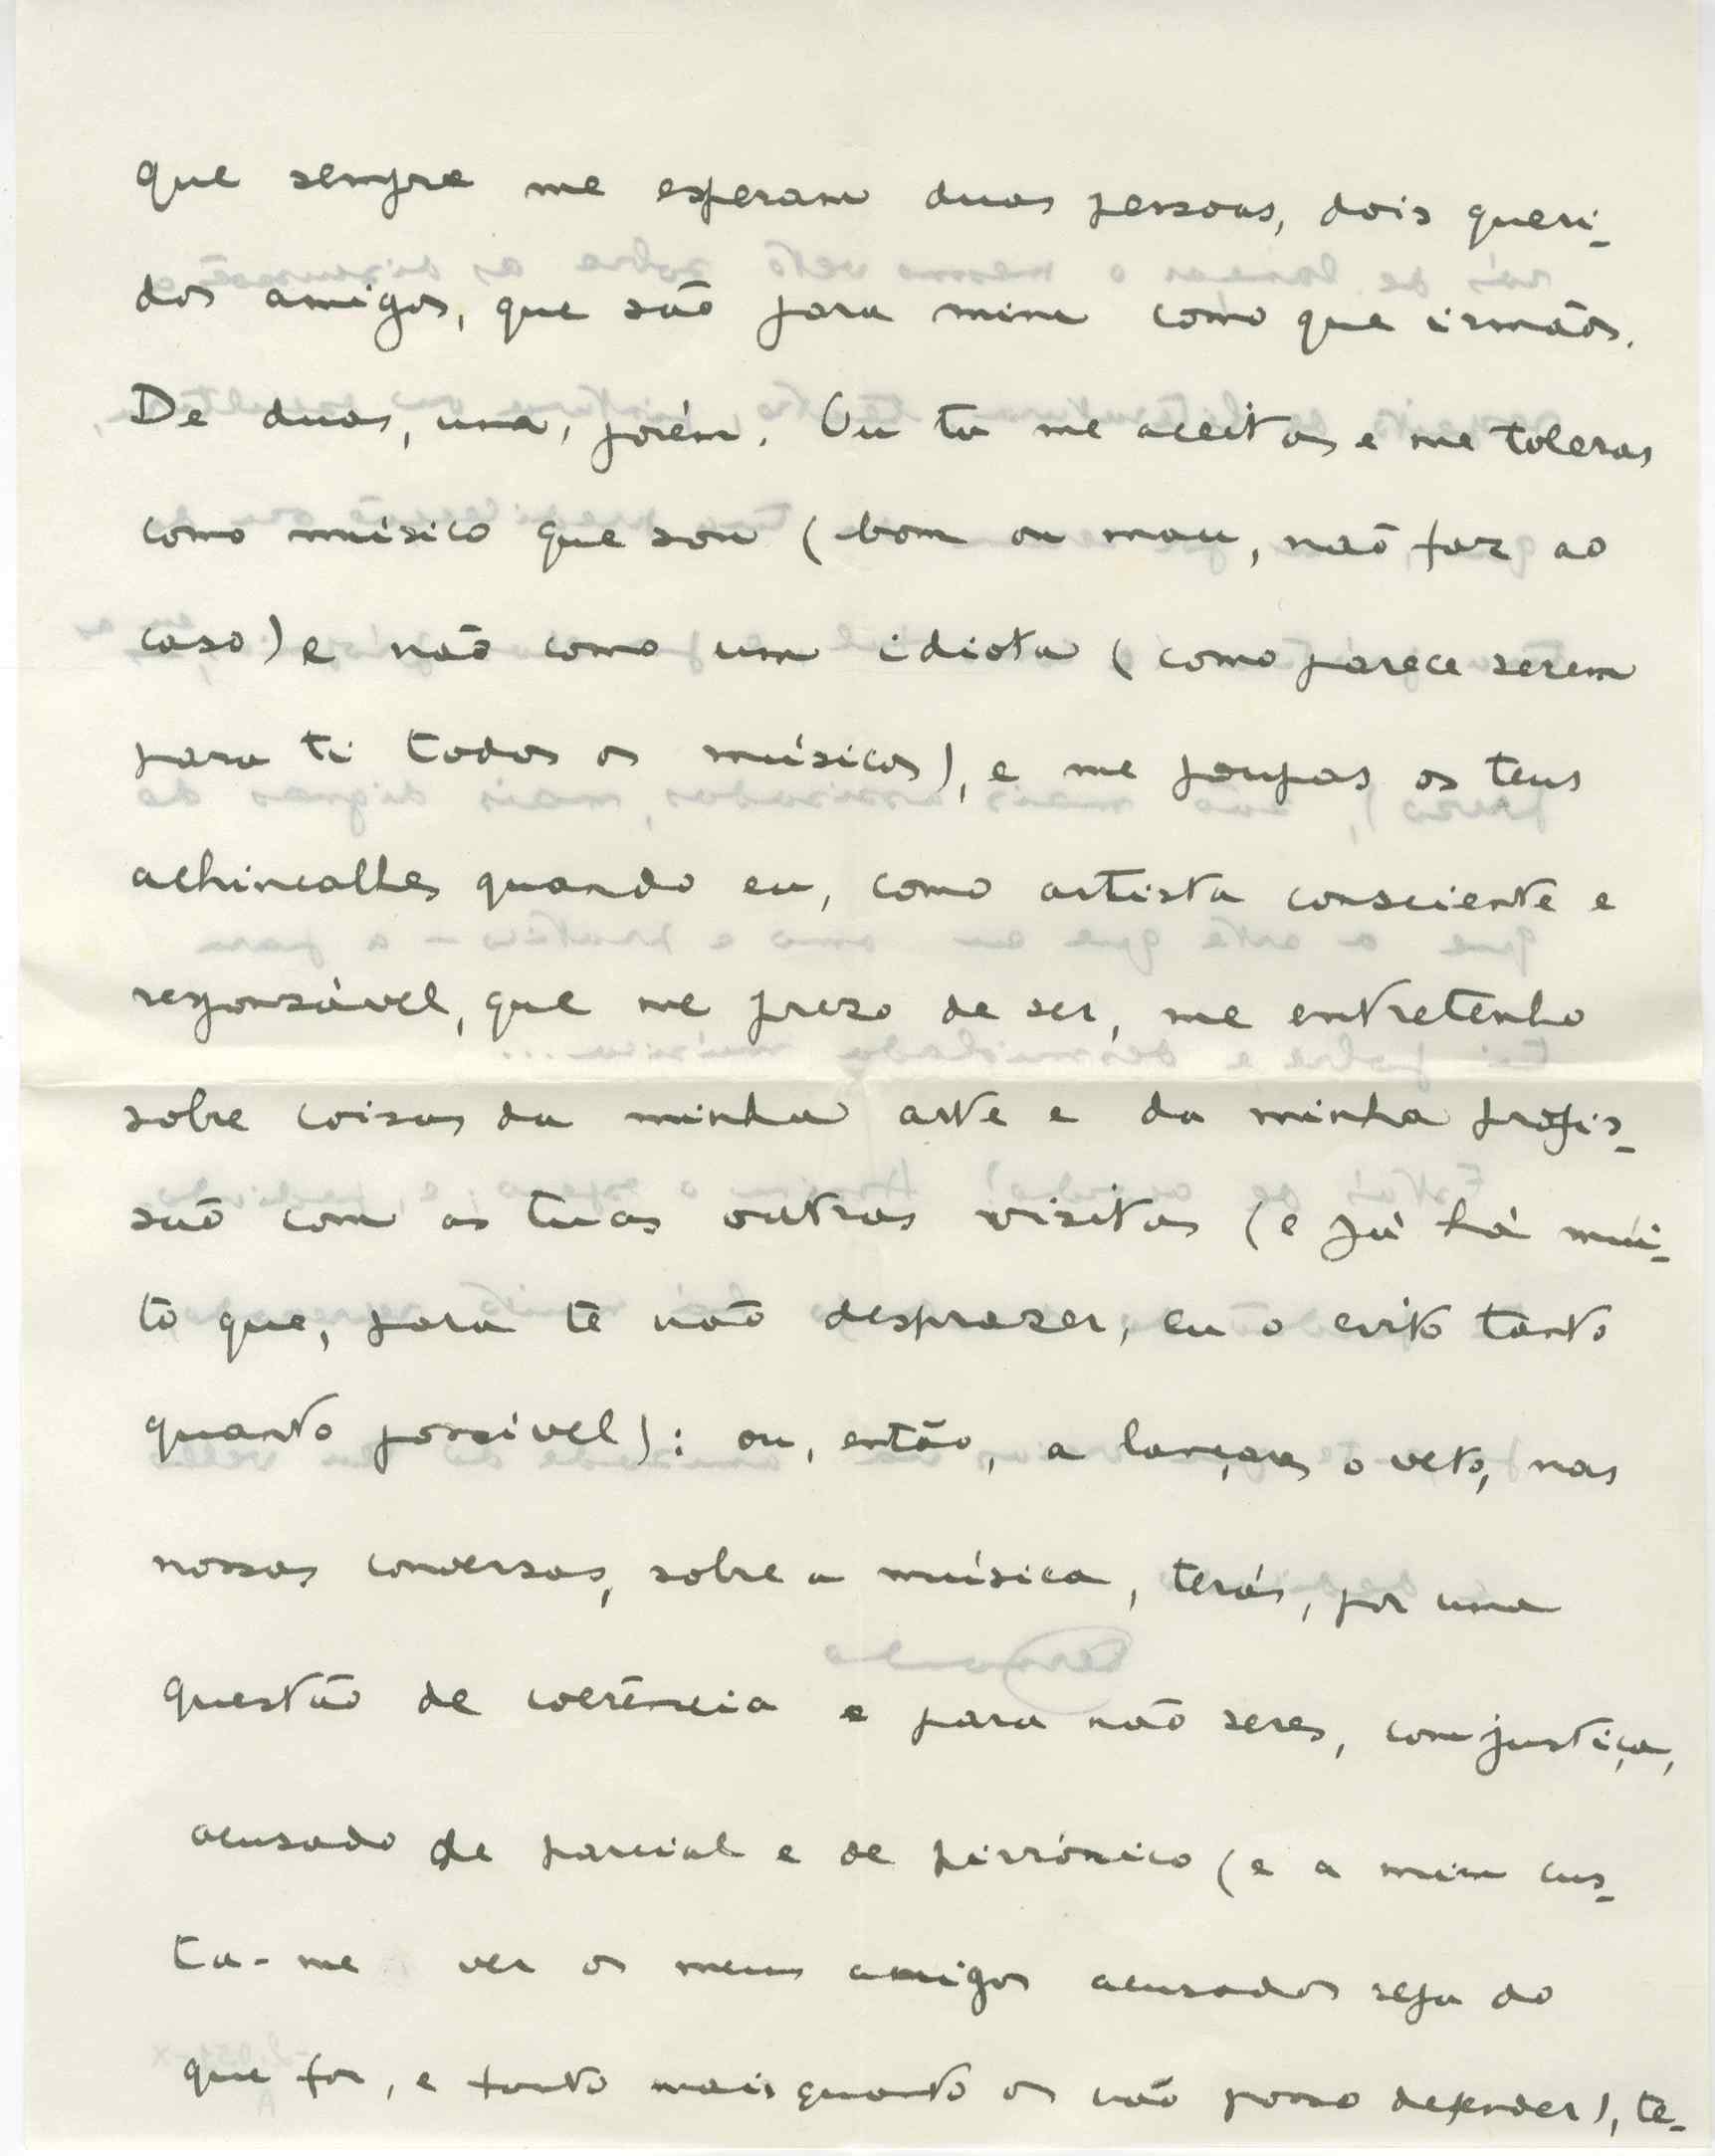 que sempre me esperam duas pessoas, dois queri-
dos amigos, que são para mim como que irmãos.
De duas, uma, porém. Ou tu me aceitas e me toleras
como músico que sou (bom ou mau, não faz ao
caso) e não como um idiota (como parece serem
para ti todos os músicos), e me poupas os teus
achincalhes quando eu, como artista consciente e
responsável, que me prezo de ser, me entretenho
sobre coisas da minha arte e da minha profis-
são com as tuas outras visitas (e já há mui-
to que, para te não desprazer, eu o evito tanto
quanto possível); ou, então, a lançares o veto, nas
nossas conversas, sobre a música, terás, por uma
questão de coerência e para não seres, com justiça,
acusado de parcial e de pirrónico (e a mim cus-
ta-me ver os meus amigos acusados seja do
que for, e tanto mais quanto os não posso defender), te-